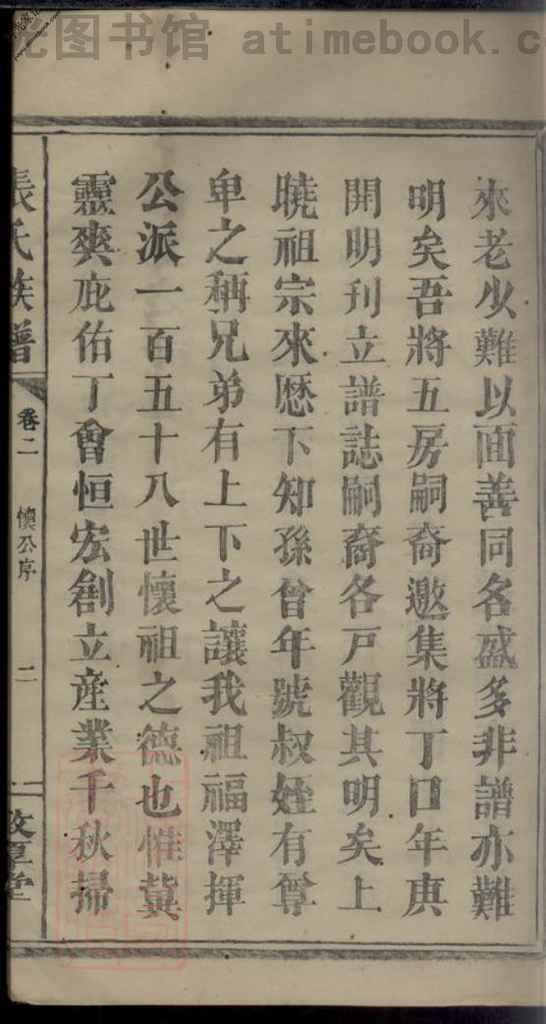 图书馆 atimebook.c
來老少難以面善同名盛多非譜亦難
明矣吾將五房嗣裔邀集將丁口年庚
開明刊立譜誌嗣裔各戸觀其明矣上
曉祖宗來歷下知孫曾年號叔姪有尊
卑之稱兄弟有上下之讓我祖福澤揮
公派一百五十八世懷祖之德也惟冀
靈爽庇佑丁會恒宏創立産業千秋掃
張氏族譜
卷二
懷公序
二
敦厚堂